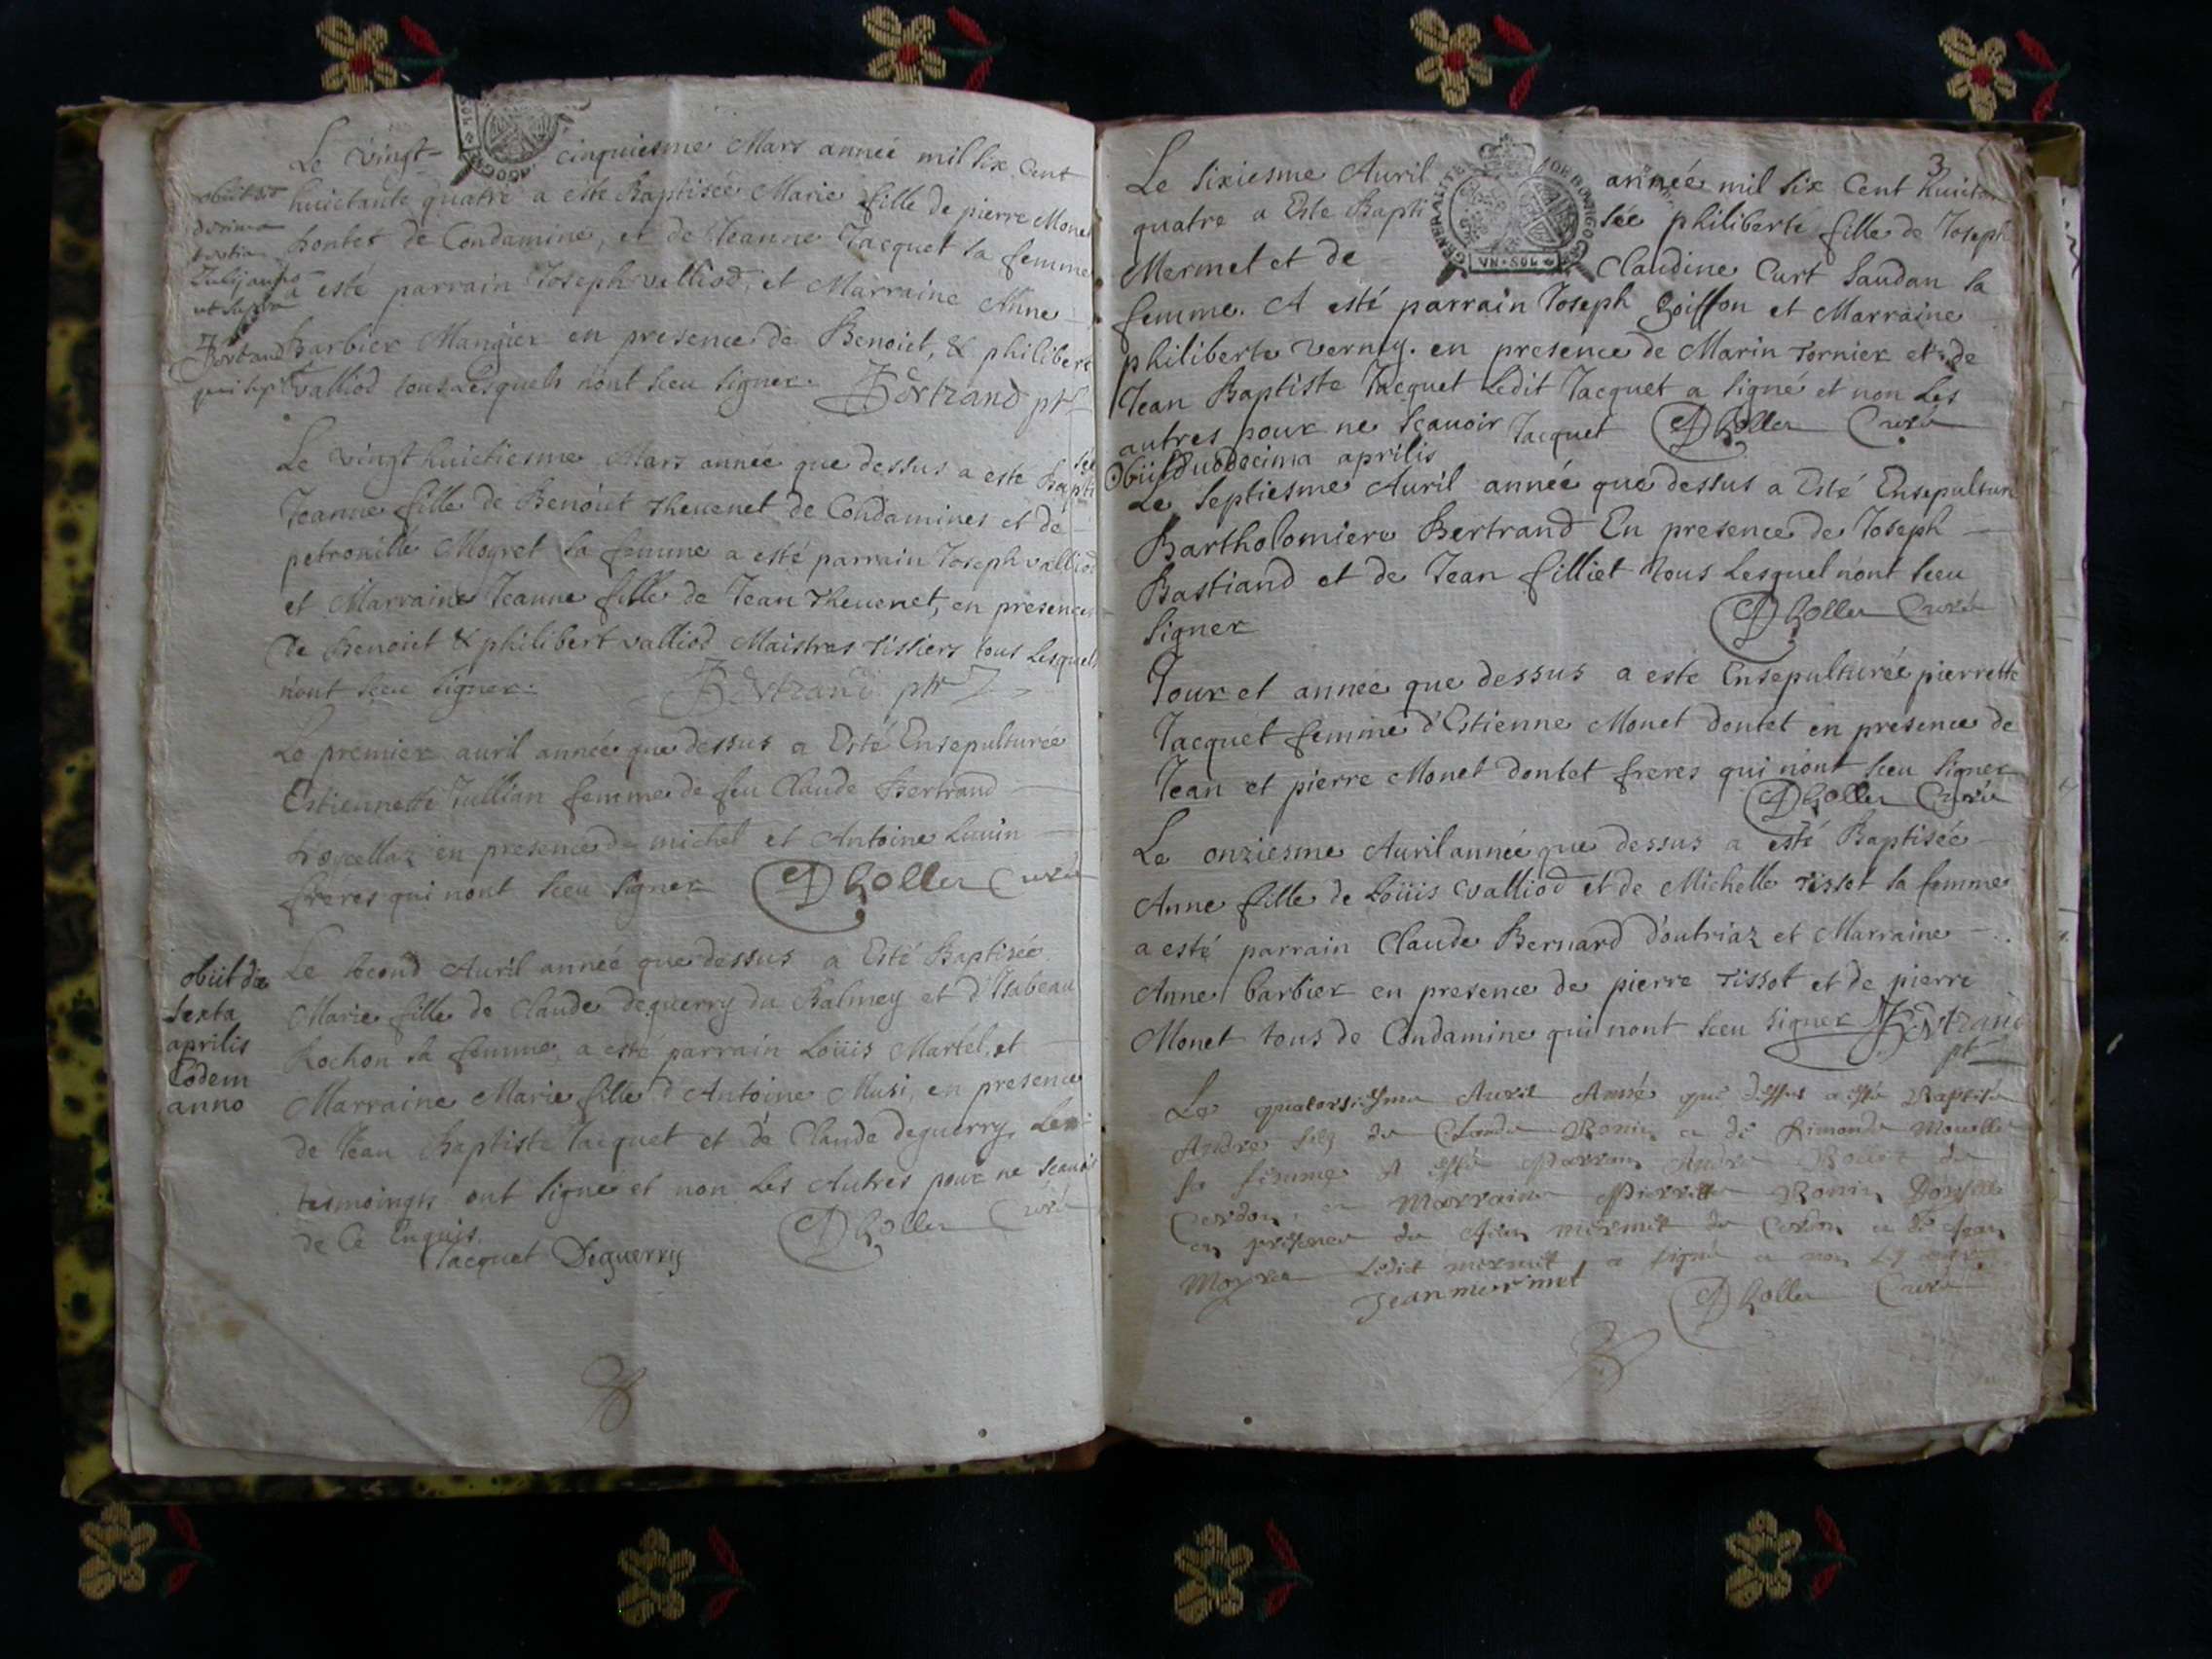 Le vingt- cinquiesme Mars année mil six cent
huictante quatre a este Baptisée Marie fille de pierre Monet
hontet de Condamine, et de Jeanne Jacquet sa femme
a esté parrain Joseph valliod, et Marraine Anne
Barbier Mangier en presence de Benoict, & philibert
valliod tous Lesquels n'ont sceu signer. Bertrand ptre
obiit
decima
tertia
Julij anno
ut supra
Bertrand
Le vingt huictiesme Mars année que dessus a este Bapti
sée
Jeanne fille de Benoict Thevenet de Condamines et de
petronille Mogret sa femme a esté parrain Joseph valliod
et Marraine Jeanne fille de Jean Thevenet, en presence
de Benoict & philibert valliod Maistres Tissiers tous Lesquels
n'ont sceu signer. Bertrand ptre
Le premier auril année que dessus a Esté Ensepulturée
Estiennette Jullian femme de feu Claude Bertrand
en presence de michel et Antoine Luuin
freres qui nont sceu signer D Roller Curé
obiit die
sexta
aprilis
Eodem
anno
Le second Auril année que dessus a Esté Baptisée
Marie fille de Claude deguerry du Balmey et d'Isabeau
Rochon sa femme, a este parrain Loüis Martel, et
Marraine Marie fille d'Antoine Musi, en presence
de Jean Baptiste Jacquet et de Claude deguerry. Les
tesmoings ont signé et non Les Autres pour ne scauoir
de Ce Enquis. D Roller Curé
Jacquet Deguerry
3
GENERALITE DE BOURGOGNE
VN·SOL
Le sixiesme Auril année mil six Cent huictan
quatre a Este Bapti sée philiberte fille de Joseph
Mermet et de Claudine Curt Saudan sa
femme. A esté parrain Joseph Goiffon et Marraine
philiberte verny. en presence de Marin Tornier et de
Jean Baptiste Jacquet Ledit Jacquet a signé et non Les
autres pour ne scauoir Jacquet D Roller Curé
Obiit duodecima aprilis
Le Septiesme Auril année que dessus a Esté Ensepulturé
Bartholomiere Bertrand En presence de Joseph
Bastiand et de Jean filliet tous Lesquel nont sceu
signer D Roller Curé
Jour et année que dessus a este Ensepulturée pierrette
Jacquet femme d'Estienne Monet dontet en presence de
Jean et pierre Monet dontet freres qui n'ont sceu signer
D Roller Curé
Le onziesme Auril année que dessus a esté Baptisée
Anne fille de Loüis valliod et de Michelle Tissot sa femme
a esté parrain Claude Bernard d'outriaz et Marraine
Anne barbier en presence de pierre Tissot et de pierre
Monet tous de Condamine qui nont sceu signer Bertrand
ptre
Le quatorsiesme Auril Année que dessus a esté Baptisé
André filz de Claude Bonin et de Rimonde
sa femme A esté Parrain André du
Cerdon, et Marraine Pierrette Bonin
en presence de Jean mermet du Cerdon et de Jean
Moyret Ledict mermet a signé et non Les autres
Jean mermet D Roller Curé